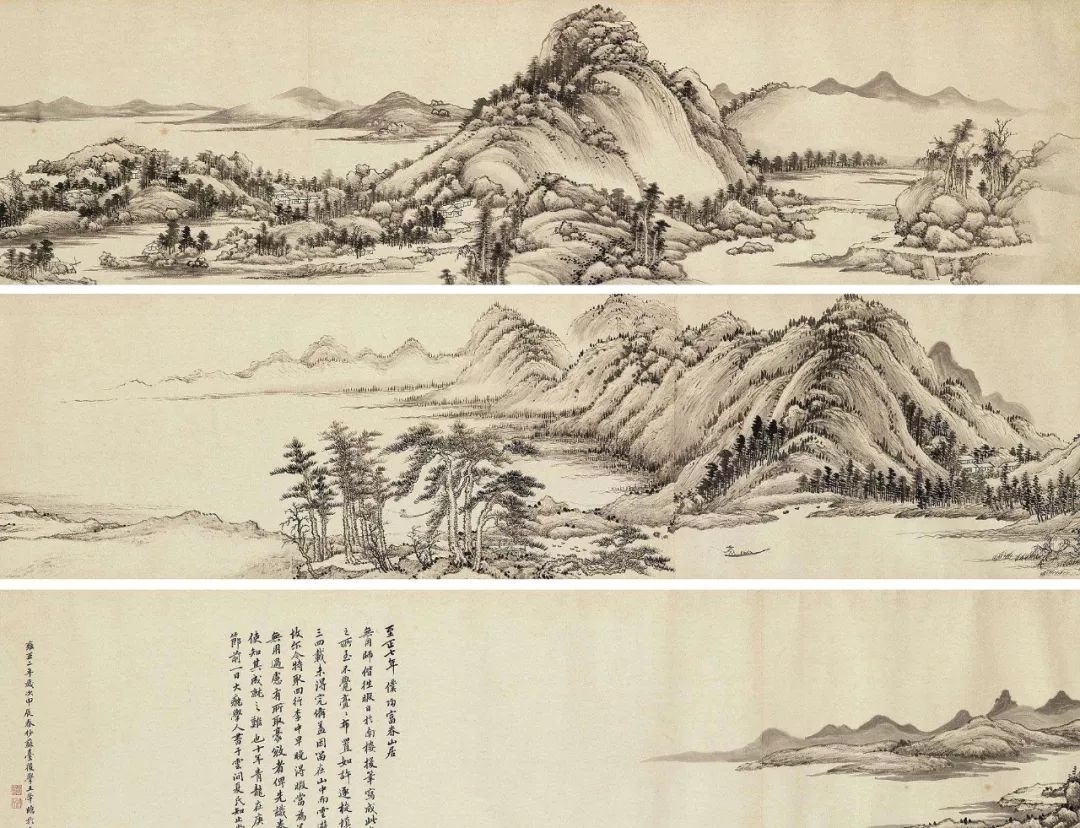 至正七年僕歸富春山居
無用師偕往暇日於南樓援筆寫成此
之所至不覺亹〻布置如許逐旋填
三四載未得完備蓋因留在山中而雲遊
故尔今特取回行李中早晚得暇當為
無用過慮有巧取豪敚者俾先識卷
使知其成就之難也十年青龍在庚
節前一日大癡學人書于雲間夏氏知止
雍正二年歲次甲辰春仲蘇臺後學王犖臨於